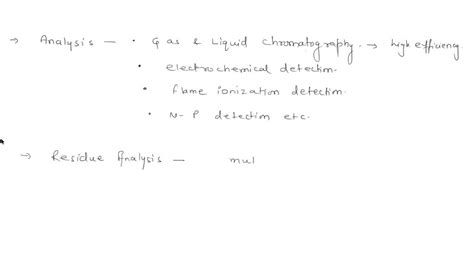 → Analysis — • Gas & Liquid chromatography. → high efficiency
• electrochemical detection.
• flame ionization detection.
• N-P detection etc.
→ Residue Analysis — mul